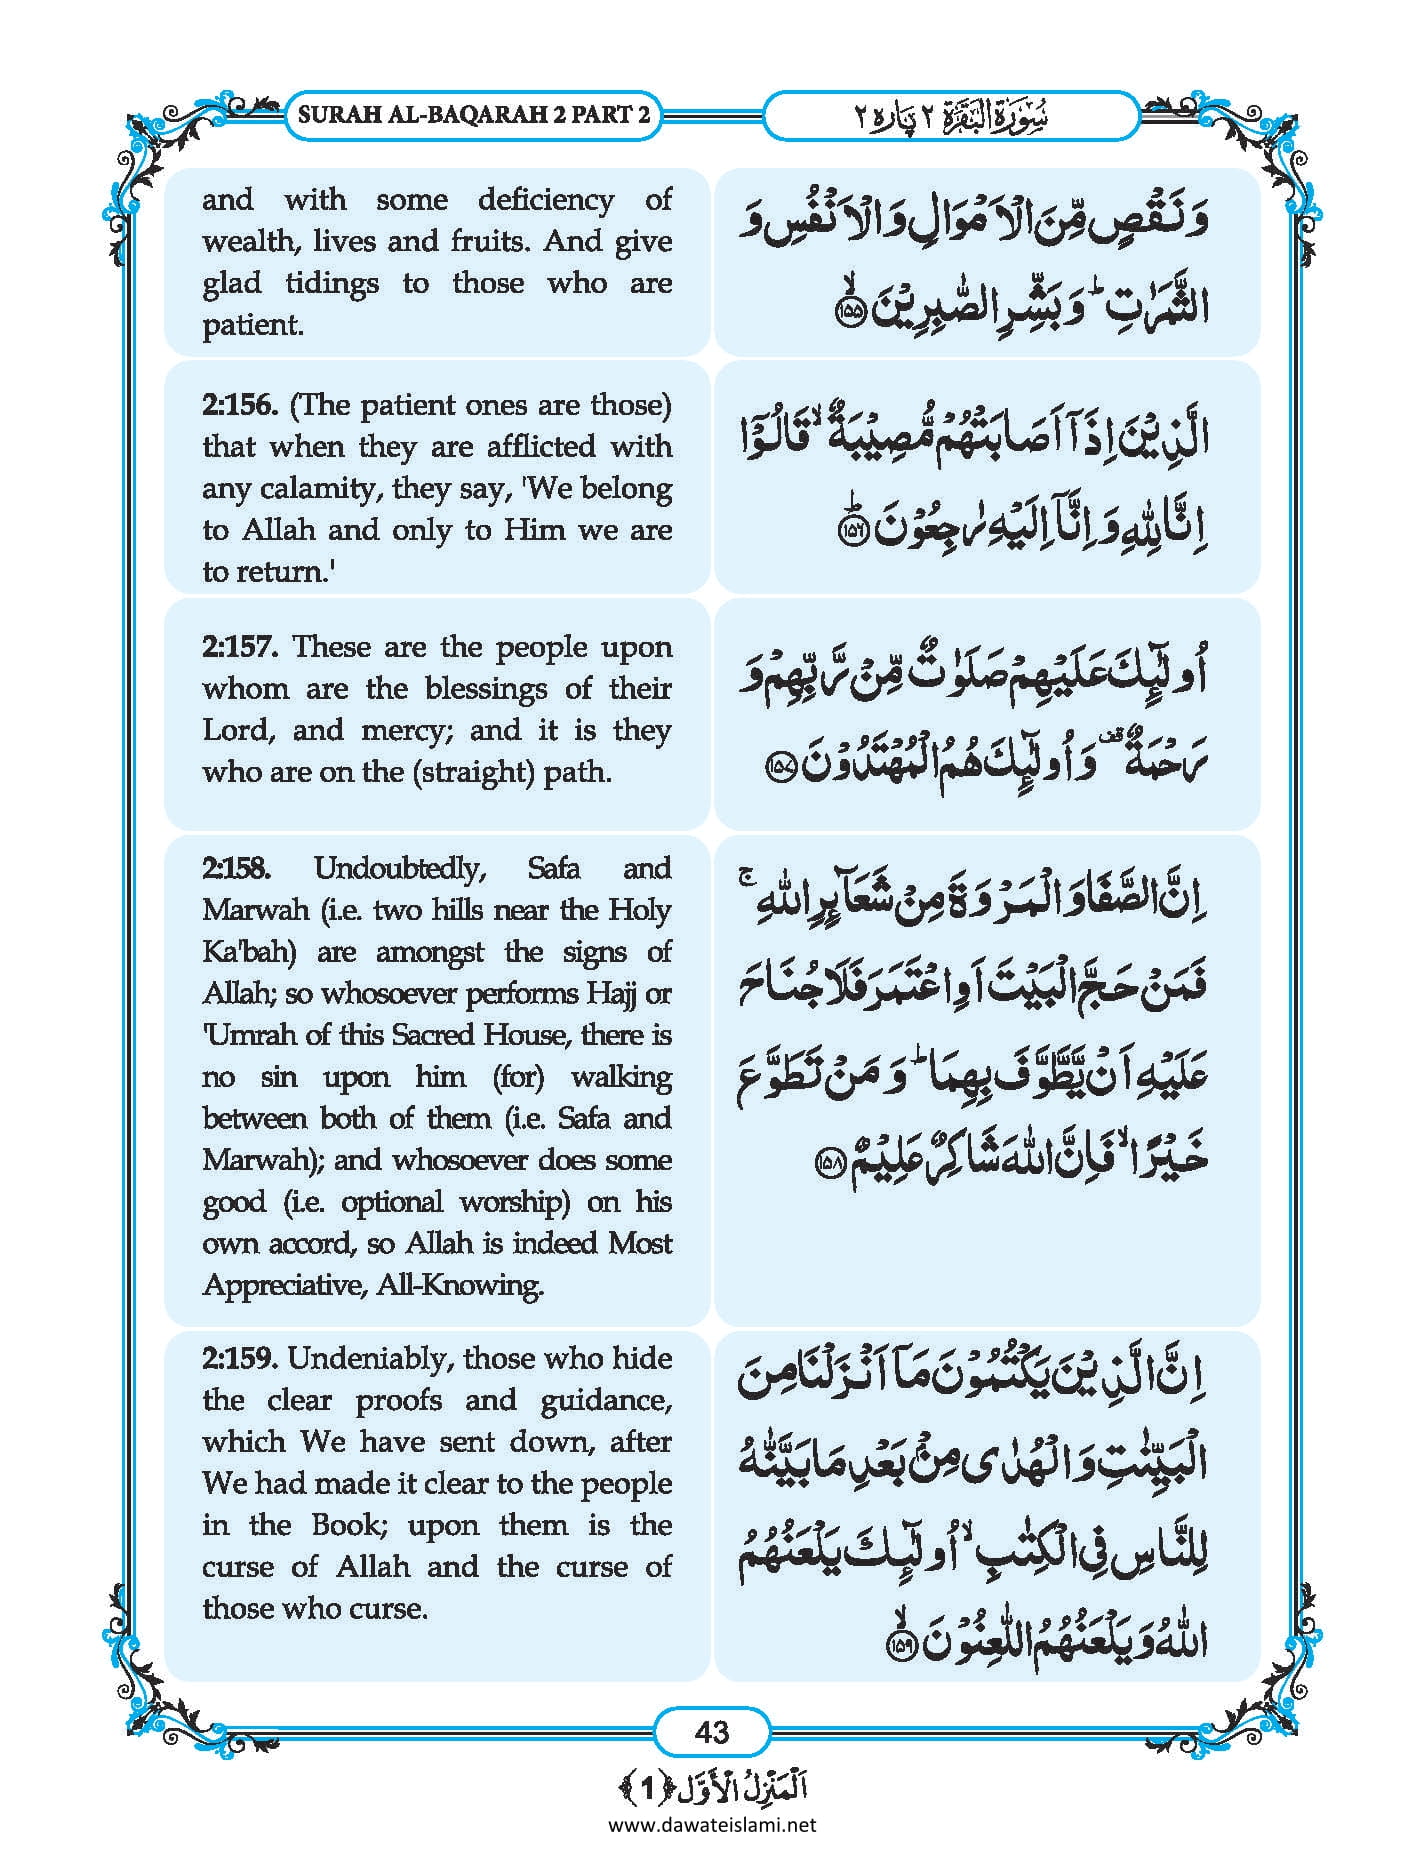 SURAH AL-BAQARAH 2 PART 2
سُوْرَۃُ الْبَقَرَۃ ٢ پارہ ٢
and with some deficiency of
wealth, lives and fruits. And give
glad tidings to those who are
patient.
وَ نَقْصٍ مِّنَ الْاَمْوَالِ وَ الْاَنْفُسِ وَ
الثَّمَرٰتِ ؕ وَ بَشِّرِ الصّٰبِرِیْنَ ۙ﴿۱۵۵﴾
2:156. (The patient ones are those)
that when they are afflicted with
any calamity, they say, 'We belong
to Allah and only to Him we are
to return.'
الَّذِیْنَ اِذَاۤ اَصَابَتْهُمْ مُّصِیْبَةٌ ۙ قَالُوْۤا
اِنَّا لِلّٰهِ وَ اِنَّاۤ اِلَیْهِ رٰجِعُوْنَ ﴿۱۵۶﴾ؕ
2:157. These are the people upon
whom are the blessings of their
Lord, and mercy; and it is they
who are on the (straight) path.
اُولٰٓىِٕكَ عَلَیْهِمْ صَلَوٰتٌ مِّنْ رَّبِّهِمْ وَ
رَحْمَةٌ ۫ وَ اُولٰٓىِٕكَ هُمُ الْمُهْتَدُوْنَ ﴿۱۵۷﴾
2:158. Undoubtedly, Safa and
Marwah (i.e. two hills near the Holy
Ka'bah) are amongst the signs of
Allah; so whosoever performs Hajj or
'Umrah of this Sacred House, there is
no sin upon him (for) walking
between both of them (i.e. Safa and
Marwah); and whosoever does some
good (i.e. optional worship) on his
own accord, so Allah is indeed Most
Appreciative, All-Knowing.
اِنَّ الصَّفَا وَ الْمَرْوَةَ مِنْ شَعَآىِٕرِ اللّٰهِ ۚ
فَمَنْ حَجَّ الْبَیْتَ اَوِ اعْتَمَرَ فَلَا جُنَاحَ
عَلَیْهِ اَنْ یَّطَّوَّفَ بِهِمَا ؕ وَ مَنْ تَطَوَّعَ
خَیْرًا ۙ فَاِنَّ اللّٰهَ شَاكِرٌ عَلِیْمٌ ﴿۱۵۸﴾
2:159. Undeniably, those who hide
the clear proofs and guidance,
which We have sent down, after
We had made it clear to the people
in the Book; upon them is the
curse of Allah and the curse of
those who curse.
اِنَّ الَّذِیْنَ یَكْتُمُوْنَ مَاۤ اَنْزَلْنَا مِنَ
الْبَیِّنٰتِ وَ الْهُدٰى مِنْۢ بَعْدِ مَا بَیَّنّٰهُ
لِلنَّاسِ فِی الْكِتٰبِ ۙ اُولٰٓىِٕكَ یَلْعَنُهُمُ
اللّٰهُ وَ یَلْعَنُهُمُ اللّٰعِنُوْنَ ۙ﴿۱۵۹﴾
43
اَلْمَنْزِلُ الْاَوَّل ﴿1﴾
www.dawateislami.net